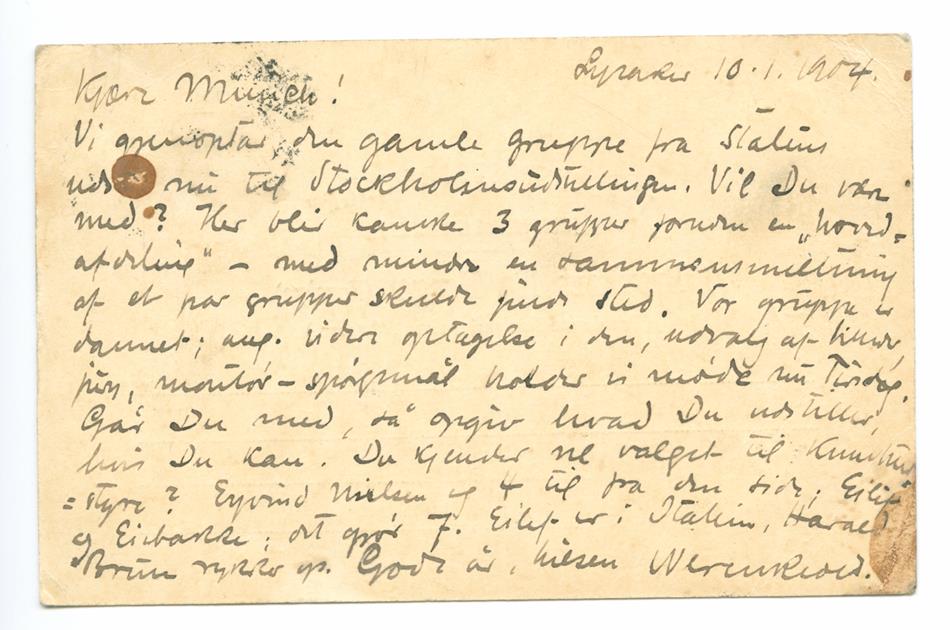 Lysaker 10.1.1904.
Kjære Munch!
Vi gjenoptar den gamle gruppe fra Statens
nu til Stockholmsudstillingen. Vil Du være
med? Her blir kanske 3 grupper foruden en „hoved=
afdeling" – med mindre en sammensmeltning
af et par grupper skulde finde sted. Vor gruppe er
dannet; ang. videre optagelse i den, udvalg af billeder,
jury, montør – spørgsmål holder vi møde nu Tirsdag.
Går Du med, så opgiv hvad Du udstiller,
hvis Du kan. Du kjender vel valget til Kunstner
=styre? Eyvind Nielsen og 4 til fra den side; Eilif
og Eiebakke; det gjør 7. Eilif er i Italien, Harald
Brun rykker op. Godt år, hilsen Werenskiold.